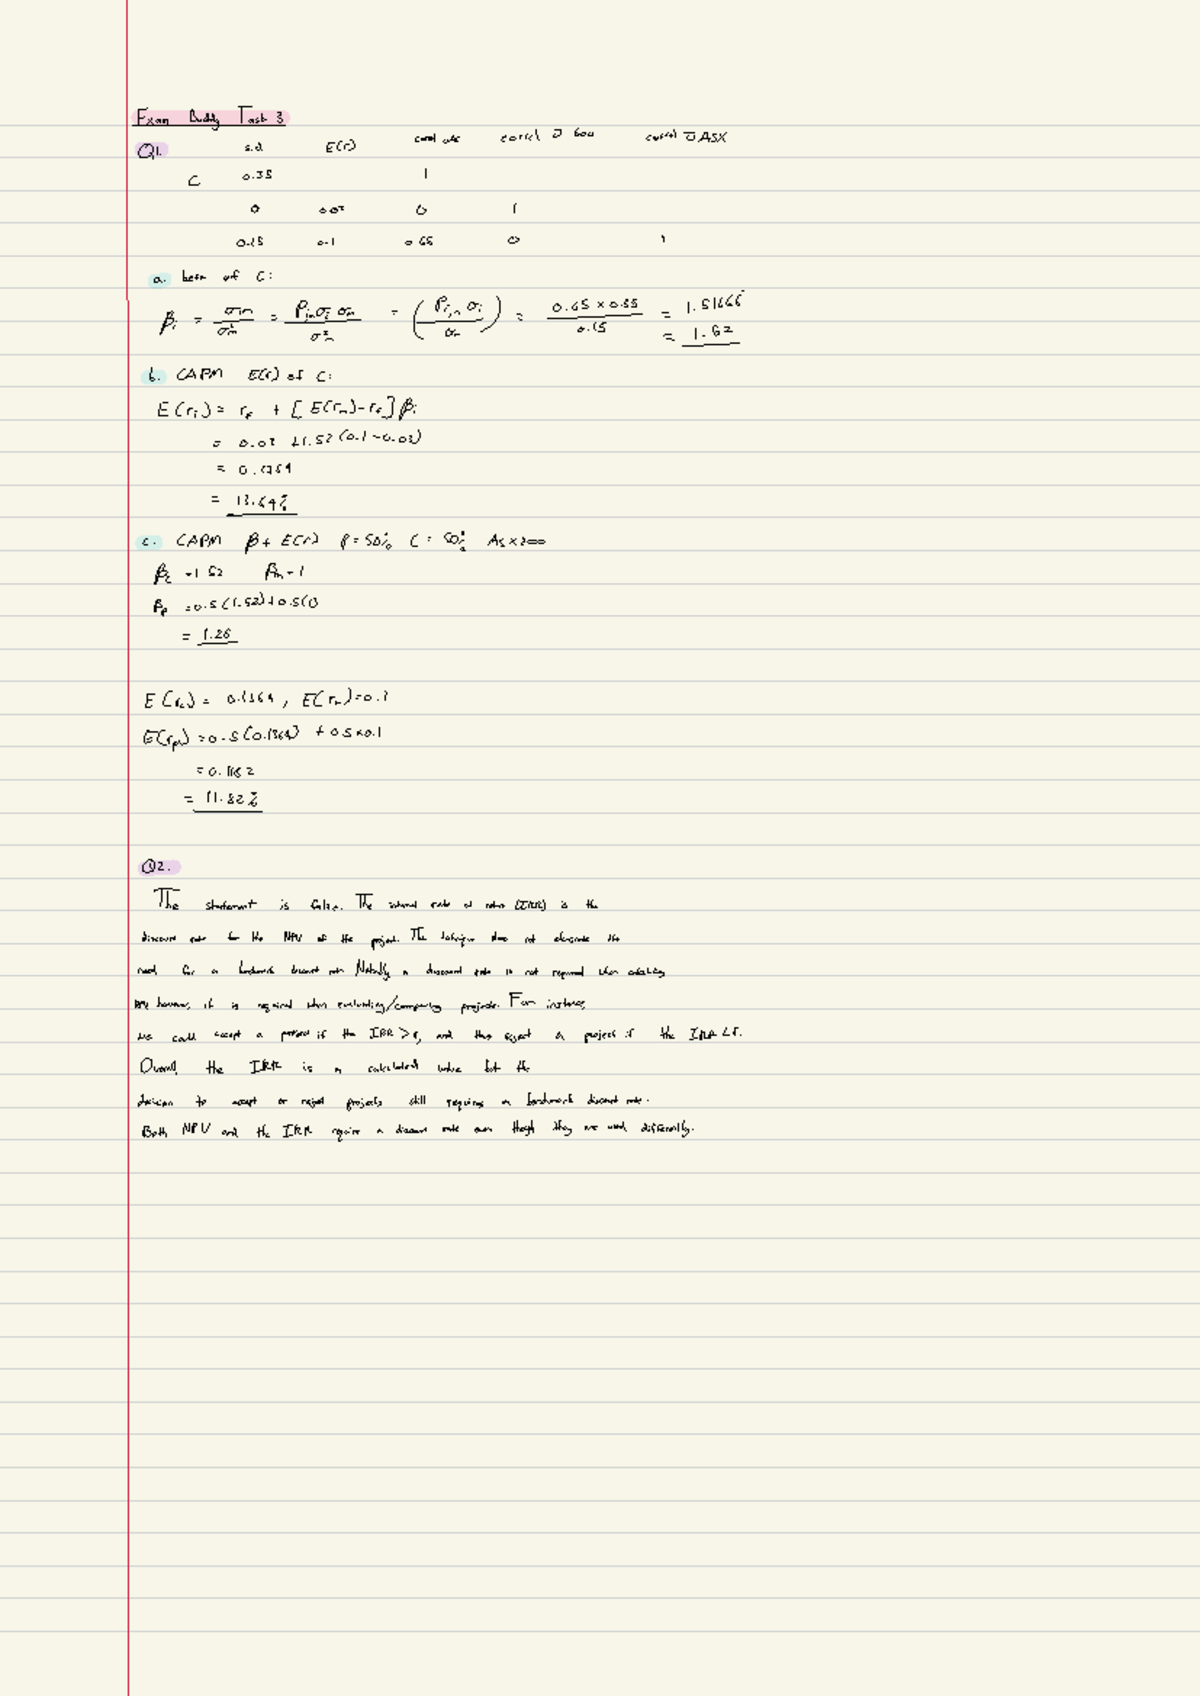 Exam Buddy Task 3
Q1. s.d E(r) correl abc correl w̄ gov correl w̄ ASX
C 0.35 1
0 0.02 0 1
0.15 0.1 0.65 0 1
a. beta of C:
βi = σim/σ²m = Pim σi σm/σ²m = (Pi,m σi/σm) = 0.65 × 0.35/0.15 = 1.51666
= 1.52
b. CAPM E(r) of C:
E(ri) = rf + [E(rm) - rf] βi
= 0.02 + 1.52 (0.1 - 0.02)
= 0.1364
= 13.64%
c. CAPM β + E(r) P = 50% C = 50% ASX200
βc = 1.52 βm = 1
βp = 0.5(1.52) + 0.5(1)
= 1.26
E(rc) = 0.1364, E(rm) = 0.1
E(rp) = 0.5(0.1364) + 0.5×0.1
= 0.1182
= 11.82%
Q2.
The statement is false. The internal rate of return (IRR) is the
discount rate for the NPV of the project. The technique does not eliminate the
need for a benchmark discount rate. Notably a discount rate is not required when calculating
IRR however, it is required when evaluating/comparing projects. For instance,
we could accept a project if the IRR > r, and thus reject a project if the IRR < r.
Overall, the IRR is a calculated value but the
decision to accept or reject projects still requires a benchmark discount rate.
Both NPV and the IRR require a discount rate even though they are used differently.